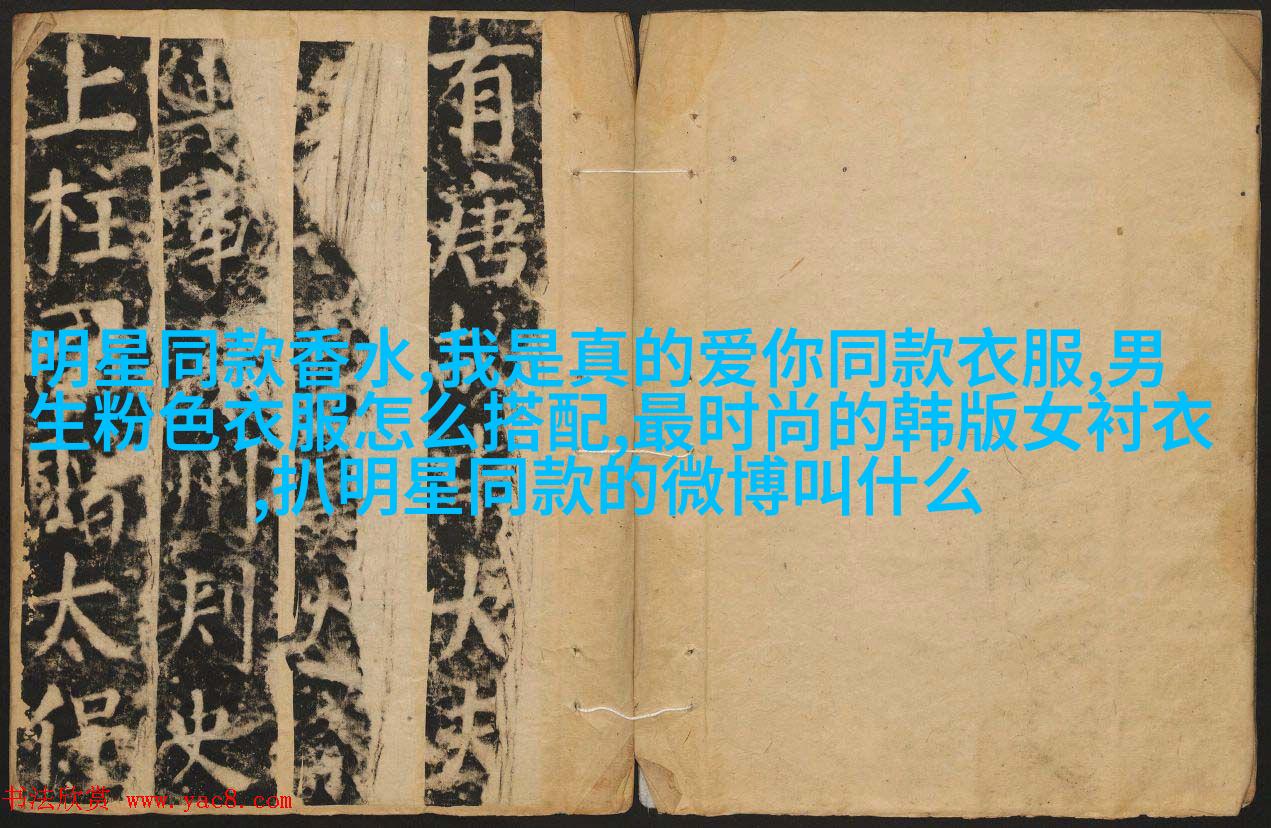 有唐大夫
軍州刾史
上柱太保
明星同款香水,我是真的爱你同款衣服,男
生粉色衣服怎么搭配,最时尚的韩版女衬衣
,扒明星同款的微博叫什么
书法欣赏 www.yac8.com